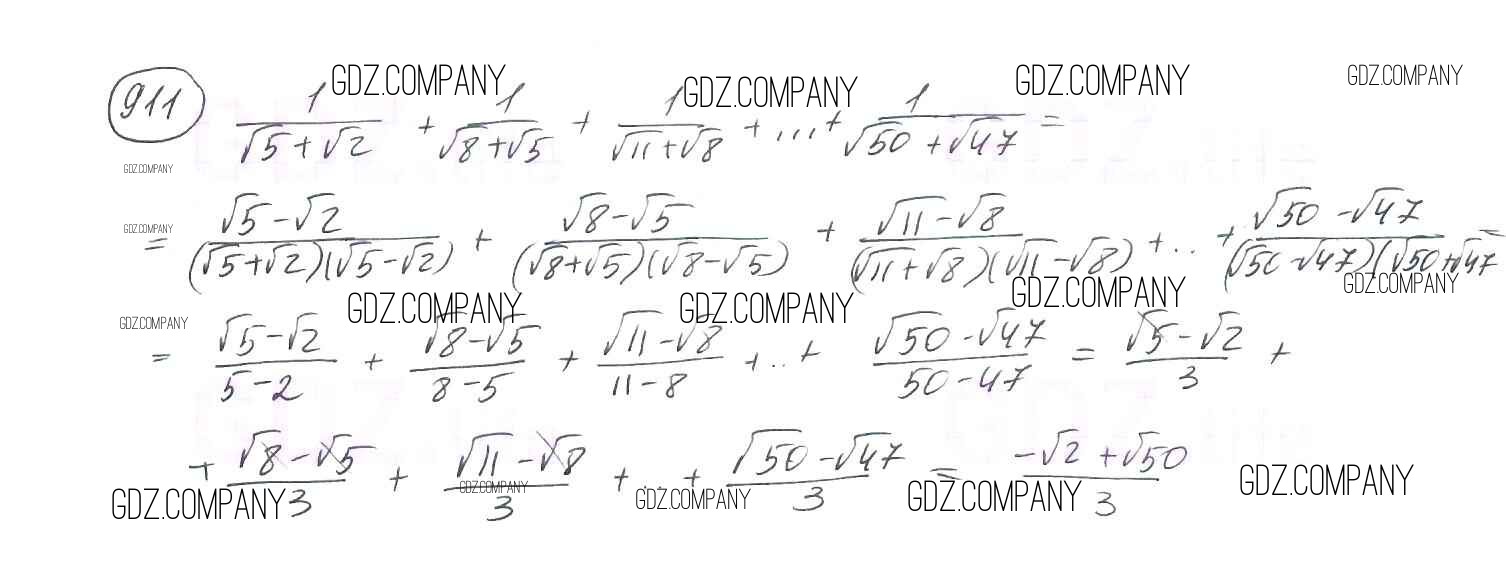 GDZ.COMPANY GDZ.COMPANY GDZ.COMPANY GDZ.COMPANY
911 1/(√5+√2) + 1/(√8+√5) + 1/(√11+√8) + ... + 1/(√50+√47) =
GDZ.COMPANY
GDZ.COMPANY
= (√5-√2)/((√5+√2)(√5-√2)) + (√8-√5)/((√8+√5)(√8-√5)) + (√11-√8)/((√11+√8)(√11-√8)) + .. + (√50-√47)/((√50-√47)(√50+√47 =
GDZ.COMPANY GDZ.COMPANY GDZ.COMPANY GDZ.COMPANY GDZ.COMPANY
= (√5-√2)/(5-2) + (√8-√5)/(8-5) + (√11-√8)/(11-8) + .. + (√50-√47)/(50-47) = (√5-√2)/3 +
+ (√8-√5)/3 + (√11-√8)/3 + .. + (√50-√47)/3 = (-√2+√50)/3
GDZ.COMPANY GDZ.COMPANY GDZ.COMPANY GDZ.COMPANY GDZ.COMPANY